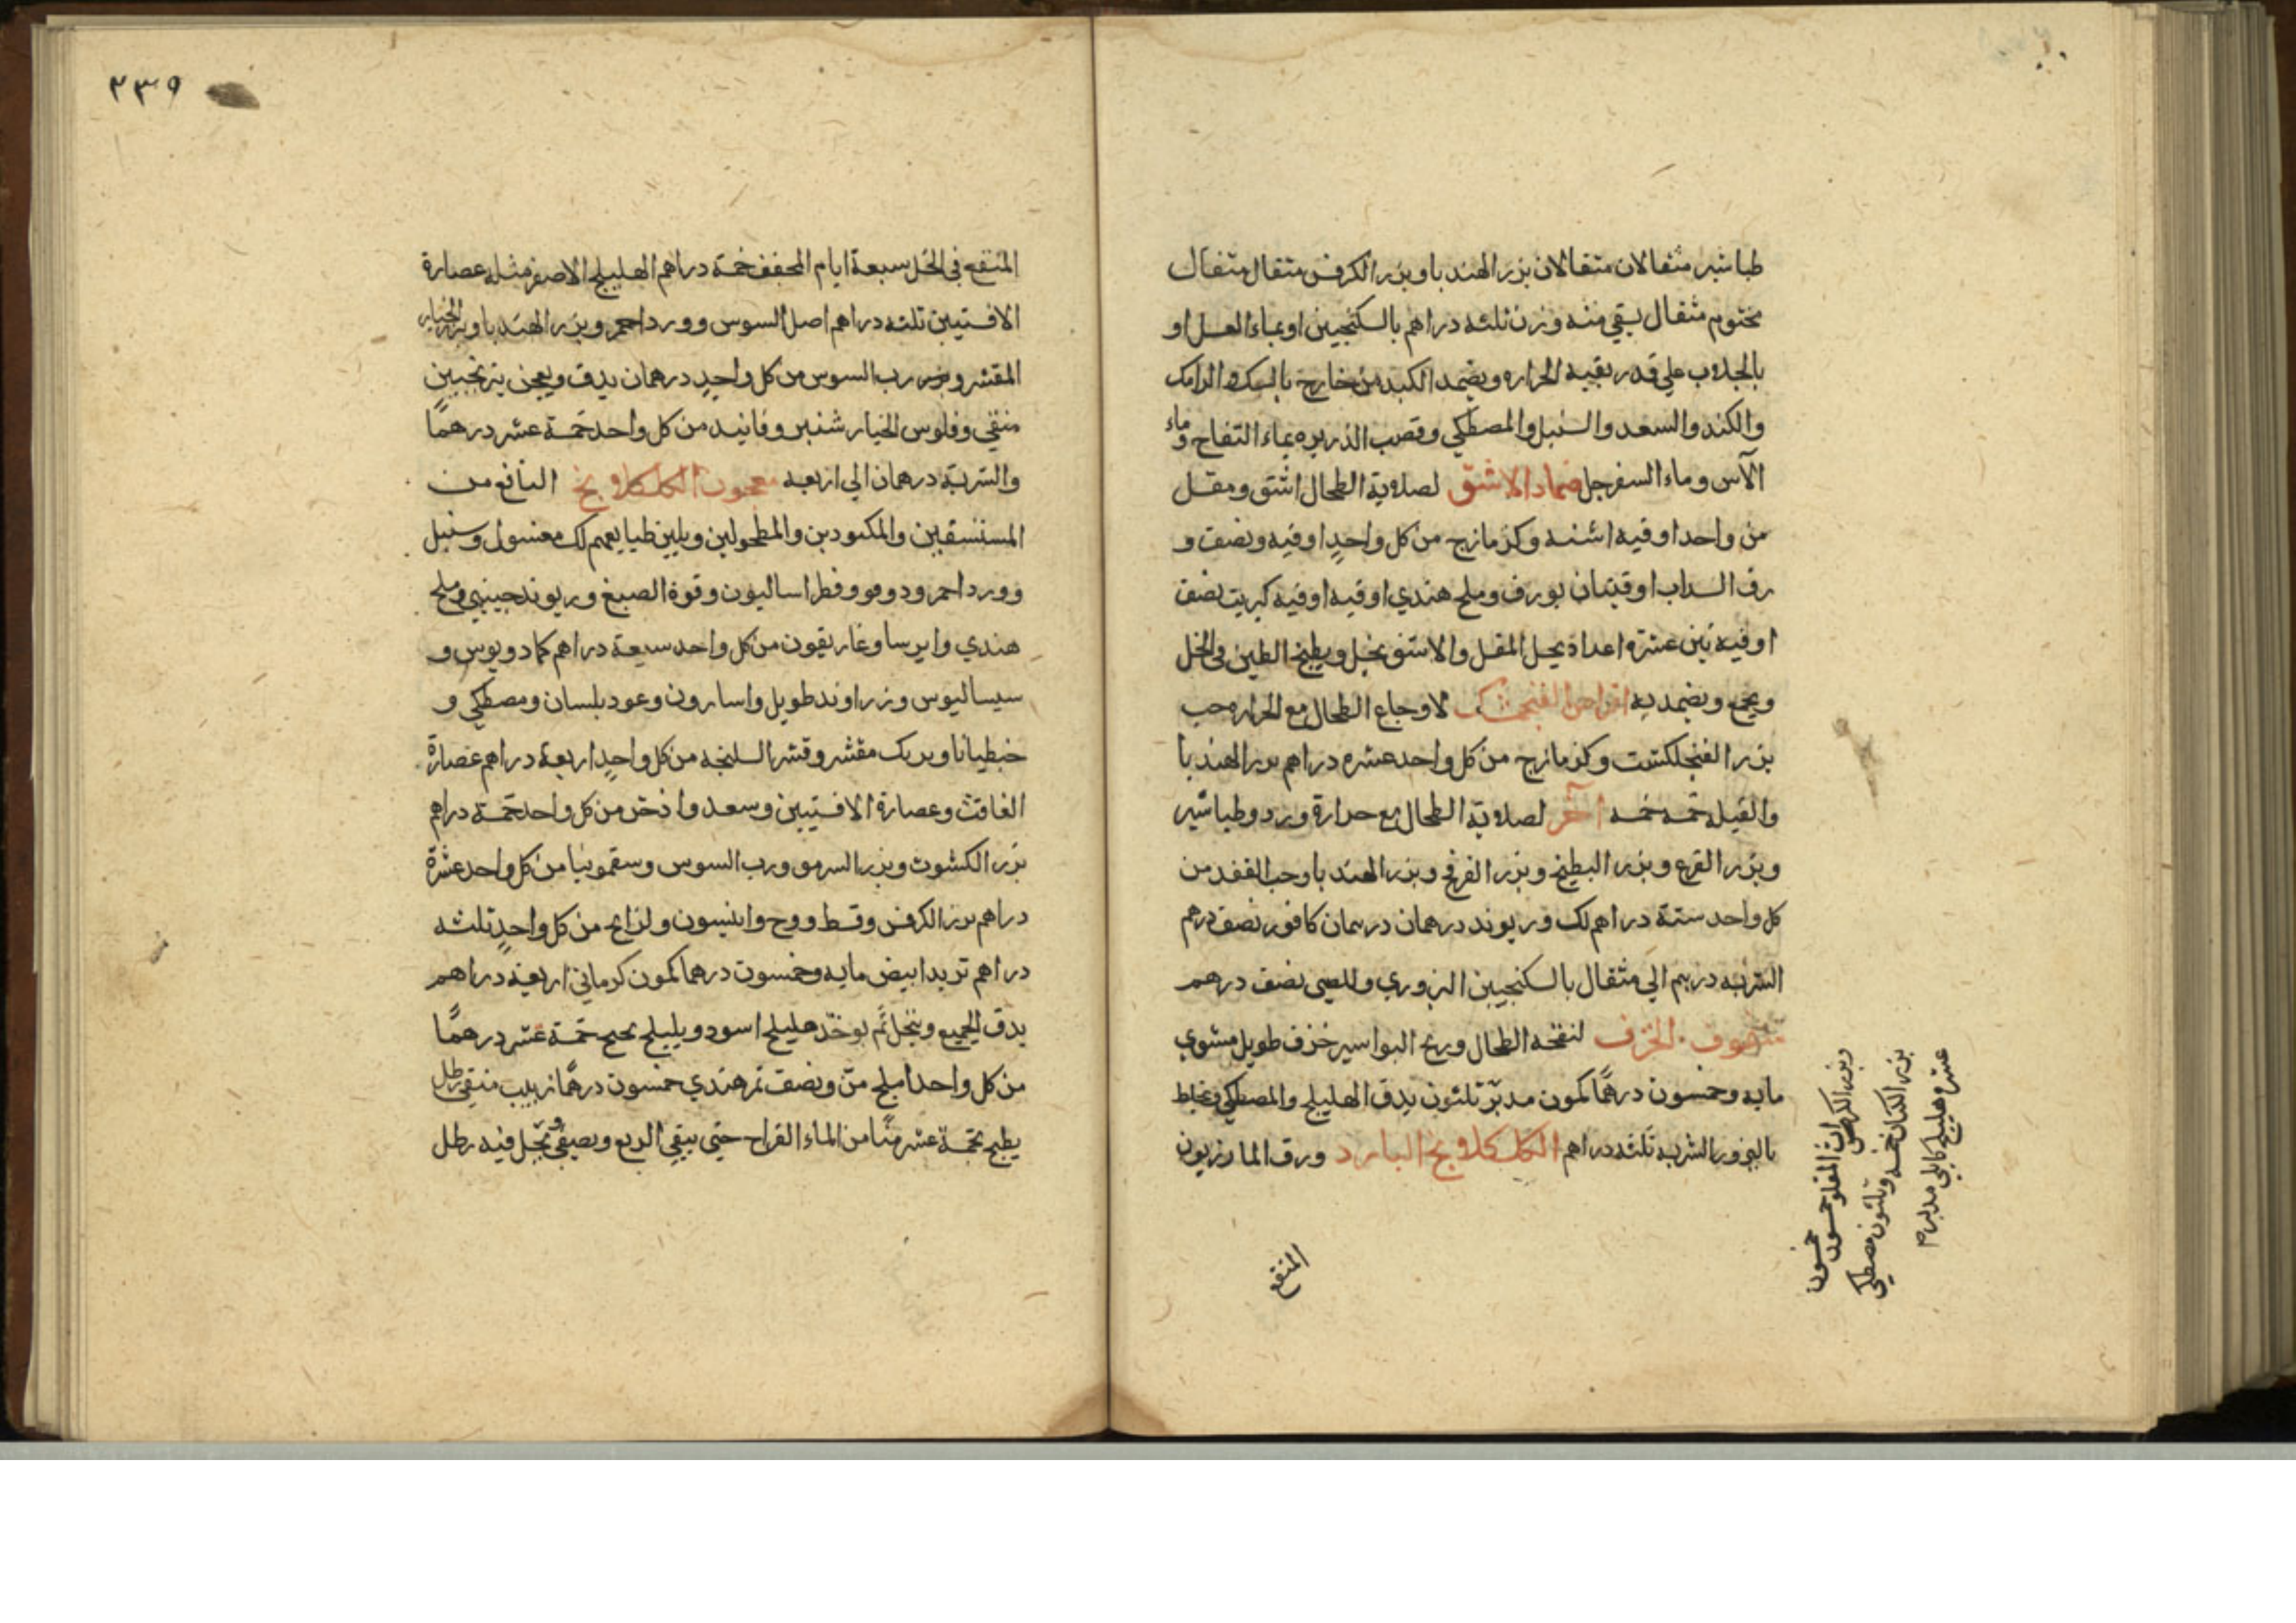 طباشير مثقالان مثقالان بزر الهندبا وبزر الكرفس مثقال مثقال
مختوم مثقال يسقي منه وزن ثلثه دراهم بالسكنجبين او بماء العسل او
بالجلاب علي قدر بقية الحراره ويضمد الكبد من خارج بالسك والرامك
والكندر والسعد والسنبل والمصطكي وقصب الذريره بماء التفاح وماء
الآس وماء السفرجل ضماد الاشق لصلابة الطحال اشق ومقل
من واحد اوقيه اشنه وكزمازج من كل واحدٍ اوقيه ونصف و
رق السداب اوقيتان بورق وملح هندي اوقيه اوقيه كبريت نصف
اوقيه تين عشره اعداد يحل المقل والاشق بخل ويطبخ الطين في الخل
ويجمع ويضمد به اقراص الفنجنشك لاوجاع الطحال مع الحراره حب
بزر الفنجلكشت وكزمازج من كل واحد عشره دراهم بزر الهندبا
والقيله خمسه خمسه آخر لصلابة الطحال مع حرارة ورد وطباشير
وبزر القرع وبزر البطيخ وبزر الفرفخ وبزر الهندبا وحب الفقد من
كل واحد ستة دراهم لك وريوند درهمان درهمان كافور نصف درهم
الشربه درهم الي مثقال بالسكنجبين البزوري وللصبى نصف درهم
سفوف الخزف لنفخه الطحال وريح البواسير خزف طويل مشوي
مايه وخمسون درهمًا كمون مدبر ثلثون يدق الهليلج والمصطكي ويخلط
بالبزور الشربه ثلثه دراهم الكلكلانج البارد ورق المازريون
وبزر الكراث المقلو خمسون
بزر الكتان خمسه وثلثون مصطكي
عشره هليلج كابلي مدبر م
المنقع
٢٣٩
المنقع في الخل سبعة ايام المجفف خمسة دراهم الهليلج الاصفر مثله عصارة
الافسنتين ثلثه دراهم اصل السوس وورد احمر وبزر الهندبا وبزر الخيار
المقشر ورب السوس من كل واحدٍ درهمان يدق ويعجن بترنجبين
منقي وفلوس الخيارشنبر وفانيد من كل واحد خمسة عشر درهمًا
والشربة درهمان الي اربعه معجون الكلكلانج النافع من
المستسقين والمكبودين والمطحولين ويلين طبايعهم لك مغسول وسنبل
وورد احمر ودوقو وفطراساليون وفوة الصبغ وريوند صيني وملح
هندي وايرسا وغاريقون من كل واحد سبعة دراهم كمادريوس و
سيساليوس وزراوند طويل واسارون وعود بلسان ومصطكي و
خبطيانا وبرنك مقشر وقشر السليخه من كل واحدٍ اربعة دراهم عصارة
الغافث وعصارة الافسنتين وسعد واذخر من كل واحد خمسة دراهم
بزر الكشوث وبزر السرمق ورب السوس وسقمونيا من كل واحد عشرة
دراهم بزر الكرفس وقسط ووج وانيسون ولزاج من كل واحدٍ ثلثه
دراهم تربد ابيض مايه وخمسون درهما كمون كرماني اربعة دراهم
يدق الجميع وينخل ثم يوخذ هليلج اسود وبليلج خمسة عشر درهمًا
من كل واحد املج منّ ونصف تمر هندي خمسون درهمًا زبيب منقي رطل
يطبخ بخمسة عشر منًا من الماء القراح حتى يبقي الربع ويصفي ويحل فيه رطل